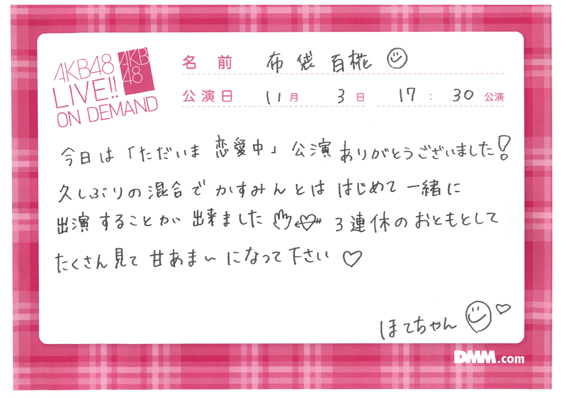 AKB48
LIVE!!
ON DEMAND
AKB
48
名前 布袋百椛
公演日 11月 3日 17:30 公演
今日は「ただいま 恋愛中」公演ありがとうございました!
久しぶりの混合で かすみんとは はじめて 一緒に
出演することが 出来ました 3連休のおともとして
たくさん見て 甘あま〜い になって下さい ♡
ほてちゃん
DMM.com